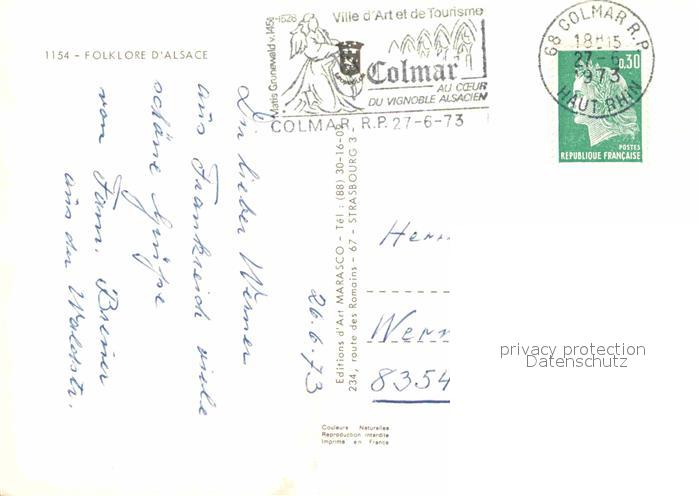 1154 - FOLKLORE D'ALSACE
Du lieber Werner
aus Frankreich viele
schöne Grüße
von Fam. Breiner
aus der Waldstr.
26.6.73
Matis Grunewald v.1455-1528
Ville d'Art et de Tourisme
Colmar
AU CŒUR
DU VIGNOBLE ALSACIEN
COLMAR, R.P. 27-6-73
68 COLMAR R.P.
18H15
27-6
1973
HAUT RHIN
0,30
POSTES
RÉPUBLIQUE FRANÇAISE
Editions d'Art MARASCO - Tél : (88) 30-16-03
234, route des Romains - 67 - STRASBOURG 3
Herr
Wern
8354
privacy protection
Datenschutz
Couleurs Naturelles
Reproduction interdite
Imprimé en France